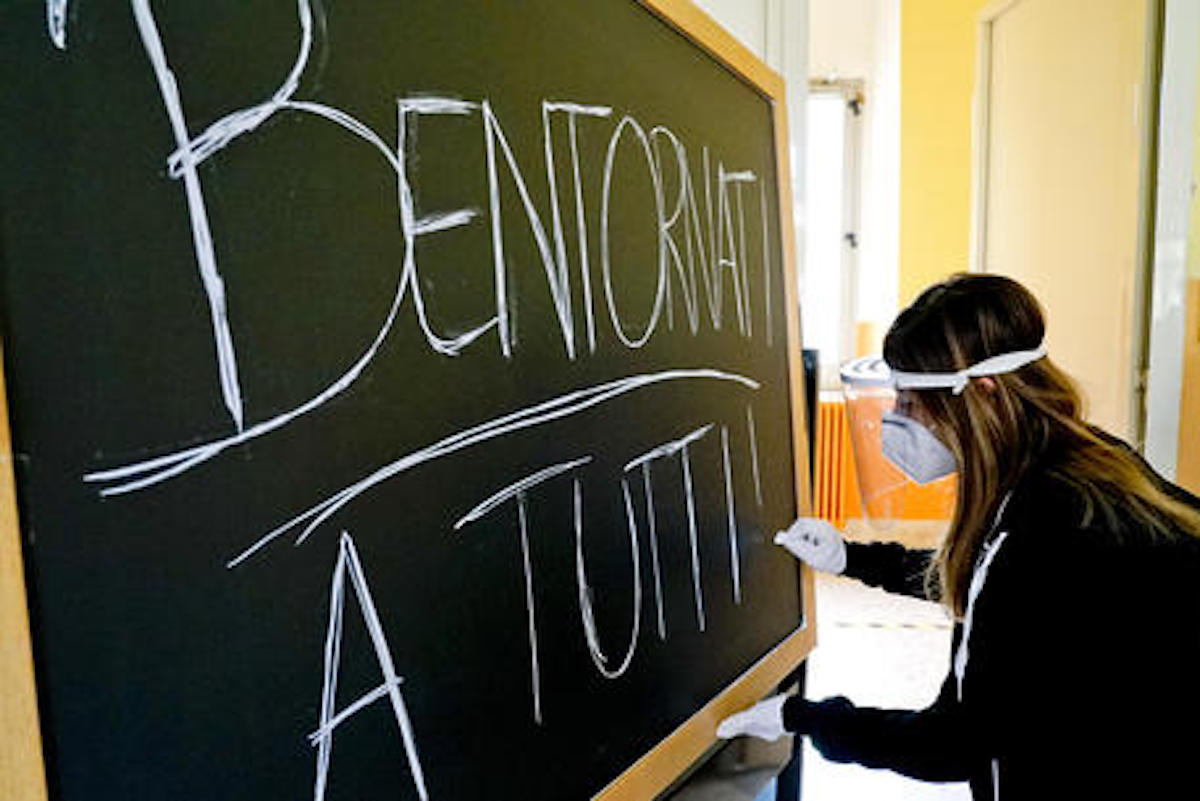 BENTORNATI
A TUTTI